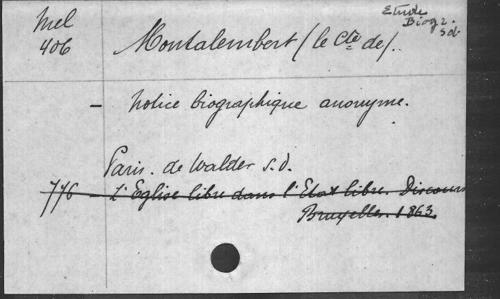 Mel
406
Etude
Biogr.
sdb
Montalembert (le Cte de).
— Notice biographique anonyme.
Paris. de Walder s.d.
776 — L'Eglise libre dans l'Etat libre. Discours
Bruxelles. 1863